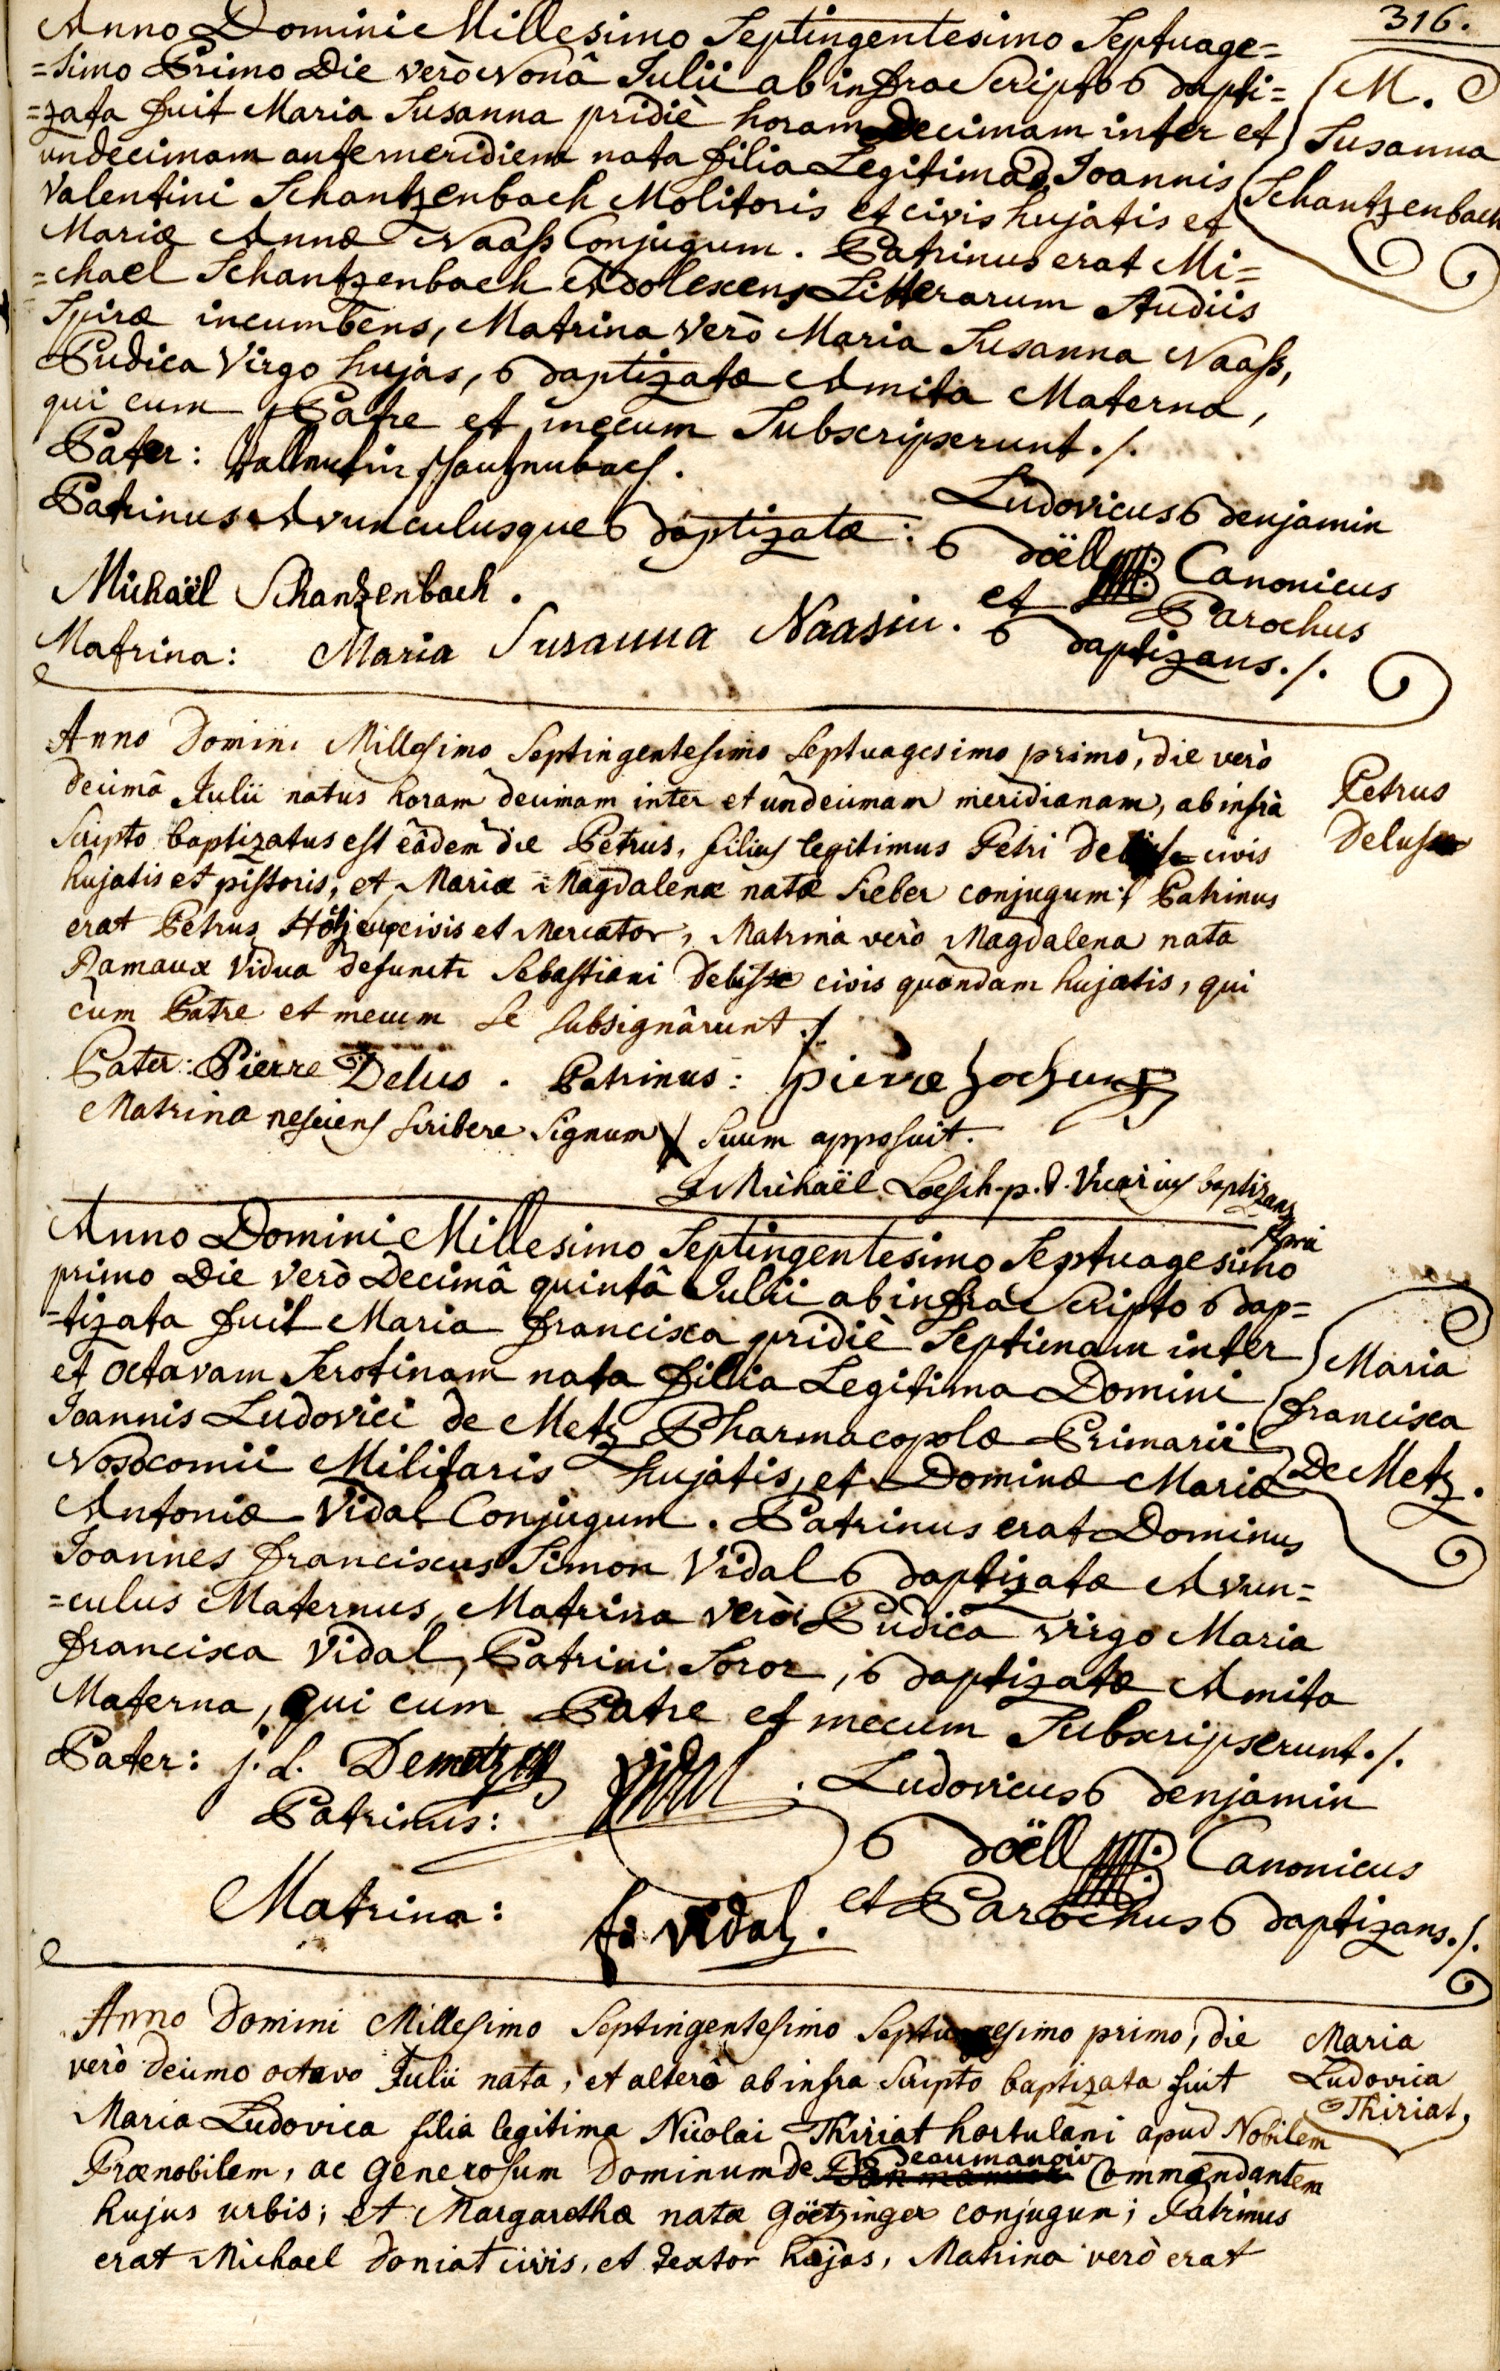 316.
Anno Domini Millesimo Septingentesimo Septuage=
=simo Primo Die verò Nonâ Julii ab infra Scripto Bapti=
=zata fuit Maria Susanna pridiè horam Decimam inter et
undecimam antemeridiem nata filia Legitima Joannis
Valentini Schantzenbach Molitoris et civis hujatis et
Mariæ Annæ Naaß Conjugum. Patrinus erat Mi=
=chael Schantzenbach Adolescens Litterarum Studiis
Spiræ incumbens, Matrina verò Maria Susanna Naaß,
Pudica Virgo hujas, Baptizatæ Amita Materna,
qui cum Patre et mecum Subscripserunt./.
M.
Susanna
Schantzenbach
Pater: Vallentin Schantzenbach.
Patrinus Avunculusque Baptizatæ:
Michaël Schantzenbach.
Matrina: Maria Susanna Naasin.
Ludovicus Benjamin
Boëll Canonicus
et Parochus
Baptizans./.
Anno Domini Millesimo Septingentesimo Septuagesimo primo, die verò
decimâ Julii natus horam decimam inter et undecimam meridianam, ab infrà
Scripto baptizatus est eâdem die Petrus, filius legitimus Petri civis
hujatis et pistoris, et Mariæ Magdalenæ natæ Sieber conjugum; Patrinus
erat Petrus civis et Mercator, Matrina verò Magdalena nata
Ramaux Vidua defuncti Sebastiani civis quondam hujatis, qui
cum Patre et mecum se subsignârunt ./.
Petrus
Pater: Pierre Delus. Patrinus: pierre
Matrina nesciens scribere Signum X suum apposuit.
J Michaël Loesch. p. t. Vicarius baptizans
Anno Domini Millesimo Septingentesimo Septuagesimo
primo Die verò Decimâ quintâ Julii ab infra Scripto Bap=
=tizata fuit Maria Francisca pridiè Septimam inter
et octavam Serotinam nata filia Legitima Domini
Joannis Ludovici de Metz Pharmacopolæ Primarii
Nosocomii Militaris hujatis, et Dominæ Mariæ
Antoniæ Vidal Conjugum. Patrinus erat Dominus
Joannes Franciscus Simon Vidal Baptizatæ Avun=
=culus Maternus, Matrina verò Pudica virgo Maria
Francisca Vidal, Patrini Soror, Baptizatæ Amita
Materna, qui cum Patre et mecum Subscripserunt./.
Maria
Francisca
De Metz.
Pater: j. L. Demetz
Patrinus: Vidal
Matrina: fr vidal.
Ludovicus Benjamin
Boëll Canonicus
et Parochus Baptizans./.
Anno Domini Millesimo Septingentesimo Septuagesimo primo, die
verò decimo octavo Julii nata, et alterò ab infra Scripto baptizata fuit
Maria Ludovica filia legitima Nicolai Thiriat hortulani apud Nobilem
Prænobilem, ac Generosum Dominum de Beaumanoir Commendantem
hujus urbis; et Margarethæ natæ Göetzinger conjugum; Patrinus
erat Michael Doniat civis, et textor hujas, Matrina verò erat
Maria
Ludovica
Thiriat,